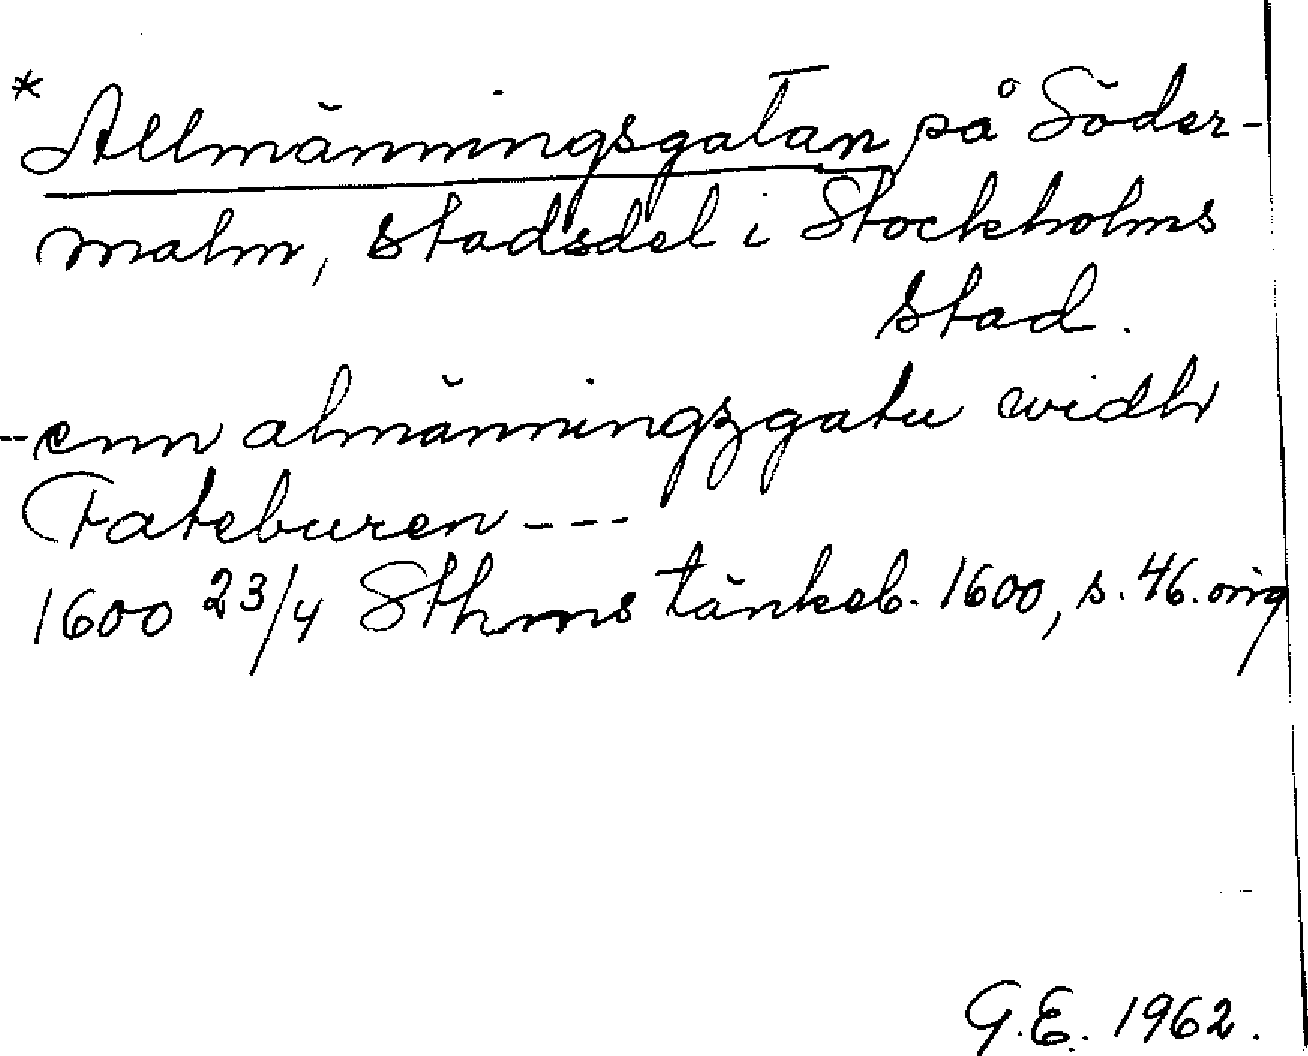 * Allmänningsgatan på Söder-
malm, stadsdel i Stockholms
stad.
--enn almänningzgatu widh
Fateburen ---
1600 23/4 Sthms tänkeb. 1600, s. 46. orig
G.E. 1962.